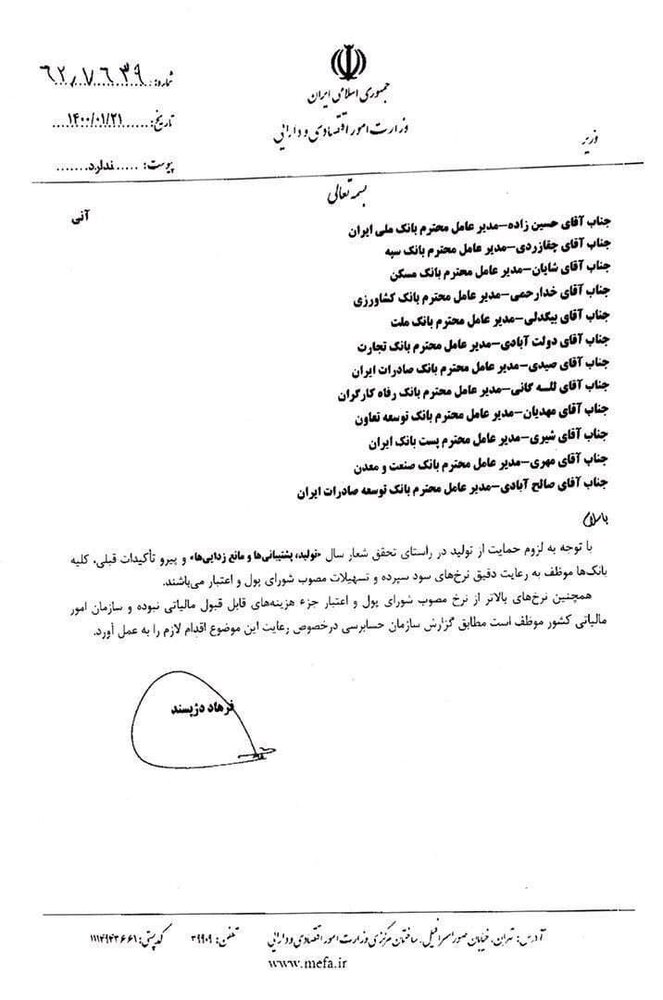 جمهوری اسلامی ایران
وزارت امور اقتصادی و دارایی
وزیر
شماره: ۶۲٫۷۶۳۹
تاریخ: ۱۴۰۰/۰۱/۲۱
پیوست: ندارد
بسمه تعالی
آنی
جناب آقای حسین زاده–مدیر عامل محترم بانک ملی ایران
جناب آقای چقازردی–مدیر عامل محترم بانک سپه
جناب آقای شایان–مدیر عامل محترم بانک مسکن
جناب آقای خدارحمی–مدیر عامل محترم بانک کشاورزی
جناب آقای بیگدلی–مدیر عامل محترم بانک ملت
جناب آقای دولت آبادی–مدیر عامل محترم بانک تجارت
جناب آقای صیدی–مدیر عامل محترم بانک صادرات ایران
جناب آقای للـه گانی–مدیر عامل محترم بانک رفاه کارگران
جناب آقای مهدیان–مدیر عامل محترم بانک توسعه تعاون
جناب آقای شیری–مدیر عامل محترم پست بانک ایران
جناب آقای مهری–مدیر عامل محترم بانک صنعت و معدن
جناب آقای صالح آبادی–مدیر عامل محترم بانک توسعه صادرات ایران
باسلام
با توجه به لزوم حمایت از تولید در راستای تحقق شعار سال «تولید، پشتیبانی‌ها و مانع زدایی‌ها» و پیرو تأکیدات قبلی، کلیه
بانک‌ها موظف به رعایت دقیق نرخ‌های سود سپرده و تسهیلات مصوب شورای پول و اعتبار می‌باشند.
همچنین نرخ‌های بالاتر از نرخ مصوب شورای پول و اعتبار جزء هزینه‌های قابل قبول مالیاتی نبوده و سازمان امور
مالیاتی کشور موظف است مطابق گزارش سازمان حسابرسی درخصوص رعایت این موضوع اقدام لازم را به عمل آورد.
فرهاد دژپسند
آدرس: تهران، خیابان صوراسرافیل، ساختمان مرکزی وزارت امور اقتصادی و دارایی تلفن: ۳۹۹۰۹ کدپستی: ۱۱۱۴۹۴۳۶۶۱
www.mefa.ir